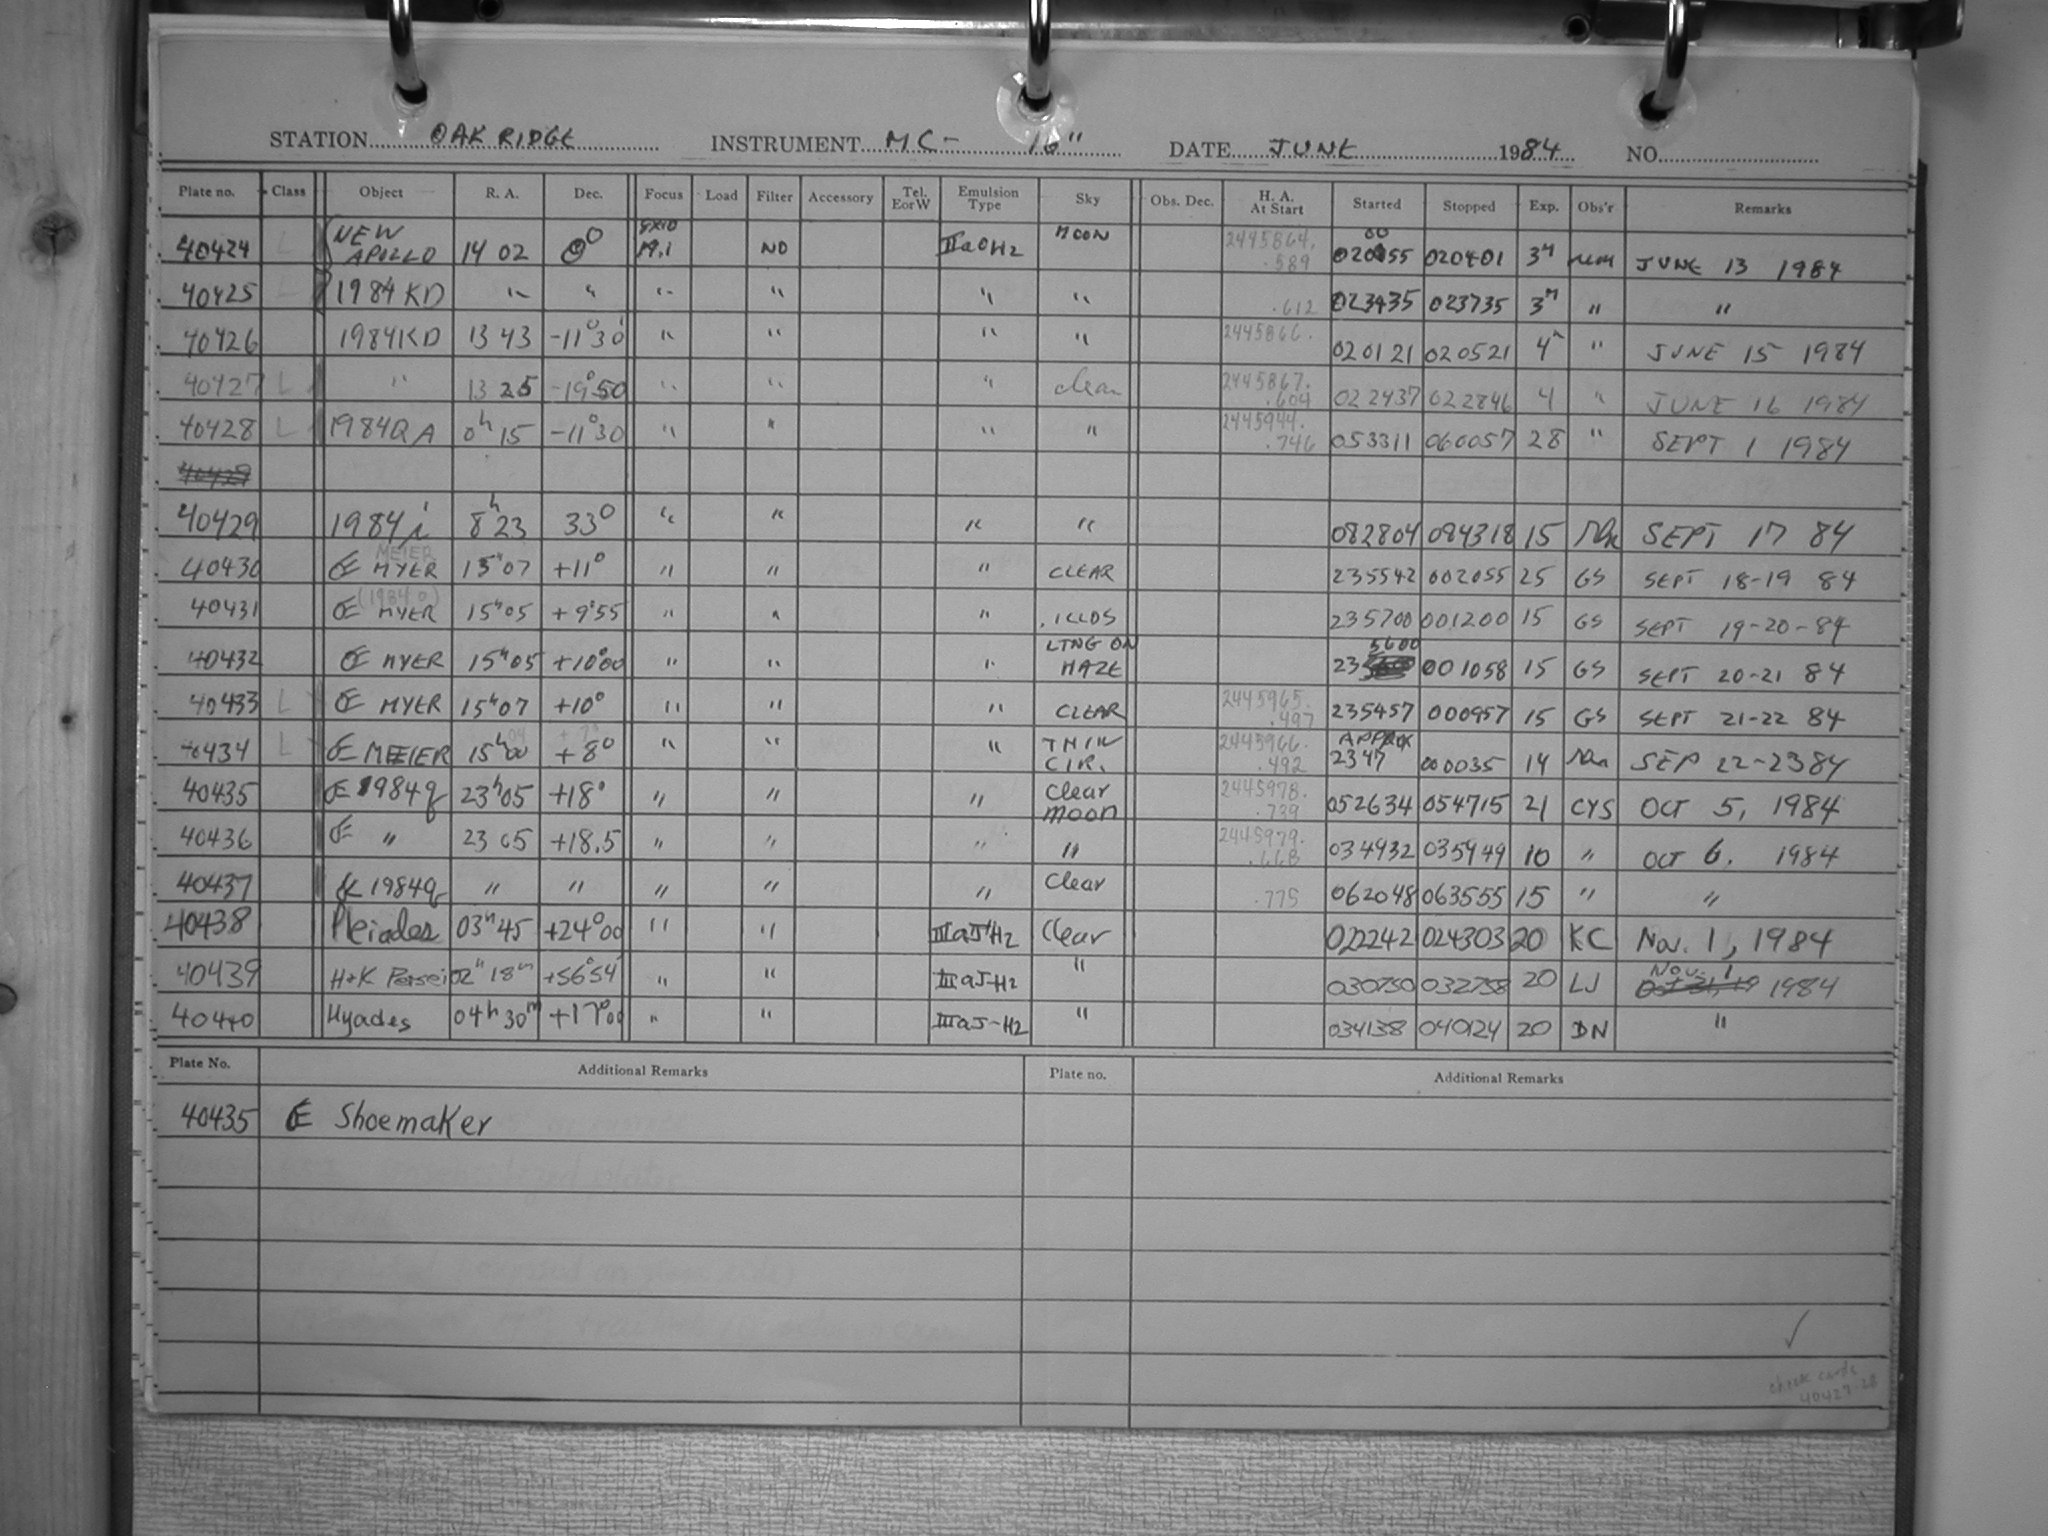 STATION OAK RIDGE INSTRUMENT MC- 16" DATE JUNE 1984 NO.
Plate no. Class Object R. A. Dec. Focus Load Filter Accessory Tel. EorW Emulsion Type Sky Obs. Dec. H. A. At Start Started Stopped Exp. Obs'r Remarks
40424 L NEW APOLLO 14 02 0° 19.1 NO IIaOH2 MOON 2445864. .589 020055 020401 3m JUNE 13 1984
40425 L 1984 KD " " " " " " .612 023435 023735 3m " "
40426 1984KD 13 43 -11°30' " " " " 2445866. 020121 020521 4m " JUNE 15 1984
40427 L " 13 25 -19°50 " " " clear 2445867. .604 022437 022846 4 " JUNE 16 1984
40428 L 1984QA 0h 15 -11°30 " " " " 2445944. .746 053311 060057 28 " SEPT 1 1984
40429
40429 1984i 8h23 33° " " " " 082804 094318 15 SEPT 17 84
40430 MEIER MYER 15h07 +11° " " " CLEAR 235542 002055 25 GS SEPT 18-19 84
40431 (1984 o) MYER 15h05 +9°55 " " " 235700 001200 15 GS SEPT 19-20-84
40432 MYER 15h05 +10°00 " " " LTNG ON HAZE 235600 001058 15 GS SEPT 20-21 84
40433 L MYER 15h07 +10° " " " CLEAR 2445965. .497 235457 000957 15 GS SEPT 21-22 84
40434 L MEIER 15h00 +8° " " " THIN CIR. 2445966. .492 APPROX 2347 000035 14 SEP 22-23 84
40435 1984q 23h05 +18° " " " Clear moon 2445978. .739 052634 054715 21 CYS OCT 5, 1984
40436 " 23 05 +18.5 " " " " 2445979. .668 034932 035949 10 " OCT 6, 1984
40437 1984q " " " " " Clear .775 062048 063555 15 " "
40438 Pleiades 03h45 +24°00 " " IIIaJH2 Clear 022242 024303 20 KC Nov. 1, 1984
40439 H+K Persei 02h 18m +56°54' " " IIIaJ-H2 " 030750 032758 20 LJ Nov. 1 1984
40440 Hyades 04h 30m +17°00 " " IIIaJ-H2 " 034138 040124 20 DN "
Plate No. Additional Remarks Plate no. Additional Remarks
40435 Shoemaker
✓
check cards
40427-28